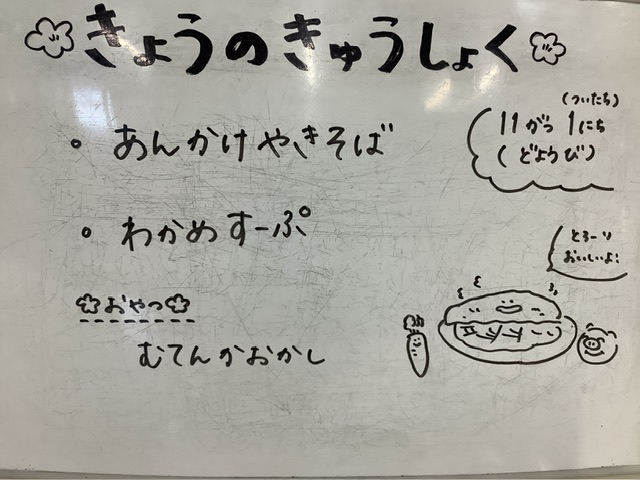 きょうのきゅうしょく
(ついたち)
11がつ1にち
(どようび)
・あんかけやきそば
・わかめすーぷ
とろーり
おいしいよ!
おやつ
むてんかおかし